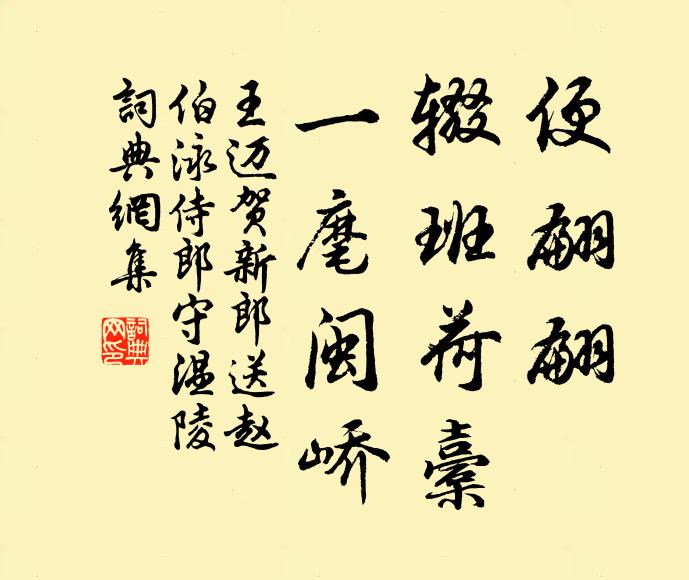 便翩翩
辍班荷橐
一麾闽峤
王迈贺新郎送赵
伯泳侍郎守温陵
詞典網集
詞典网印